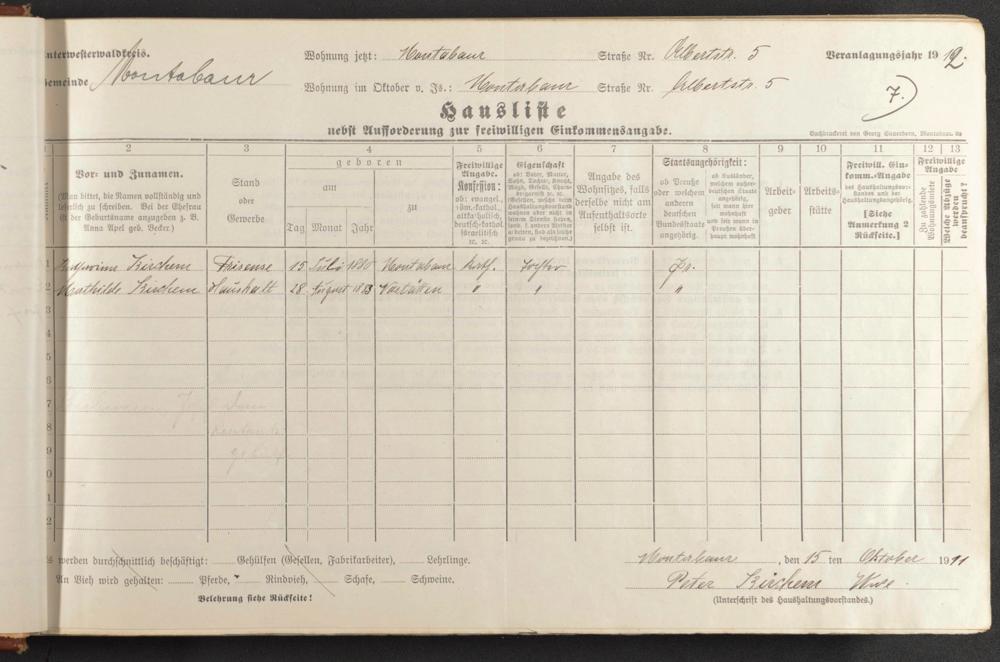 nterwesterwaldkreis. Wohnung jetzt: Montabaur Straße Nr. Albertstr. 5 Veranlagungsjahr 1912.
emeinde Montabaur Wohnung im Oktober v. Js.: Montabaur Straße Nr. Albertstr. 5 7.)
Hausliste
nebst Aufforderung zur freiwilligen Einkommensangabe.
Buchdruckerei von Georg Sauerborn, Montabaur.
2 3 4 5 6 7 8 9 10 11 12 13
Vor- und Zunamen.
(Man bittet, die Namen vollständig und
leserlich zu schreiben. Bei der Ehefrau
ist der Geburtsname anzugeben z. B.
Anna Apel geb. Becker.)
Stand
oder
Gewerbe
geboren
am
zu
Tag Monat Jahr
Freiwillige
Angabe.
Konfession:
ob: evangel.,
röm.-kathol.,
altkatholisch,
deutsch-kathol.
israelitisch
ec. ec.
Eigenschaft
ob: Vater, Mutter,
Sohn, Tochter, Knecht,
Magd, Geselle,
Angabe des
Wohnsitzes, falls
derselbe nicht am
Aufenthaltsorte
selbst ist.
Staatsangehörigkeit:
ob Preuße
oder welchem
anderen
deutschen
Bundesstaate
angehörig.
ob Ausländer,
welchem außer-
deutschen Staate
angehörig,
seit wann hier
wohnhaft
und seit wann in
Preußen über-
haupt wohnhaft
Arbeit-
geber
Arbeits-
stätte
Freiwill. Ein-
komm.-Angabe
des Haushaltungsvor-
standes und der
Haushaltungsangehörigen.
[Siehe
Anmerkung 2
Rückseite.]
Freiwillige
Angabe
Zu zahlende
Wohnungsmiete
Welche Abzüge
werden
beansprucht?
1 Kirchem Friseuse 15 Juli 1880 Montabaur kath. Tochter Pr.
2 Mathilde Kirchem Haushalt 28 August 1883 " " "
3
4
5
6
7
8
9
0
1
2
s werden durchschnittlich beschäftigt: Gehülfen (Gesellen, Fabrikarbeiter), Lehrlinge.
An Vieh wird gehalten: Pferde, Rindvieh, Schafe, Schweine.
Belehrung siehe Rückseite!
Montabaur, den 15 ten Oktober 1911
Peter Kirchem Wwe.
(Unterschrift des Haushaltungsvorstandes.)